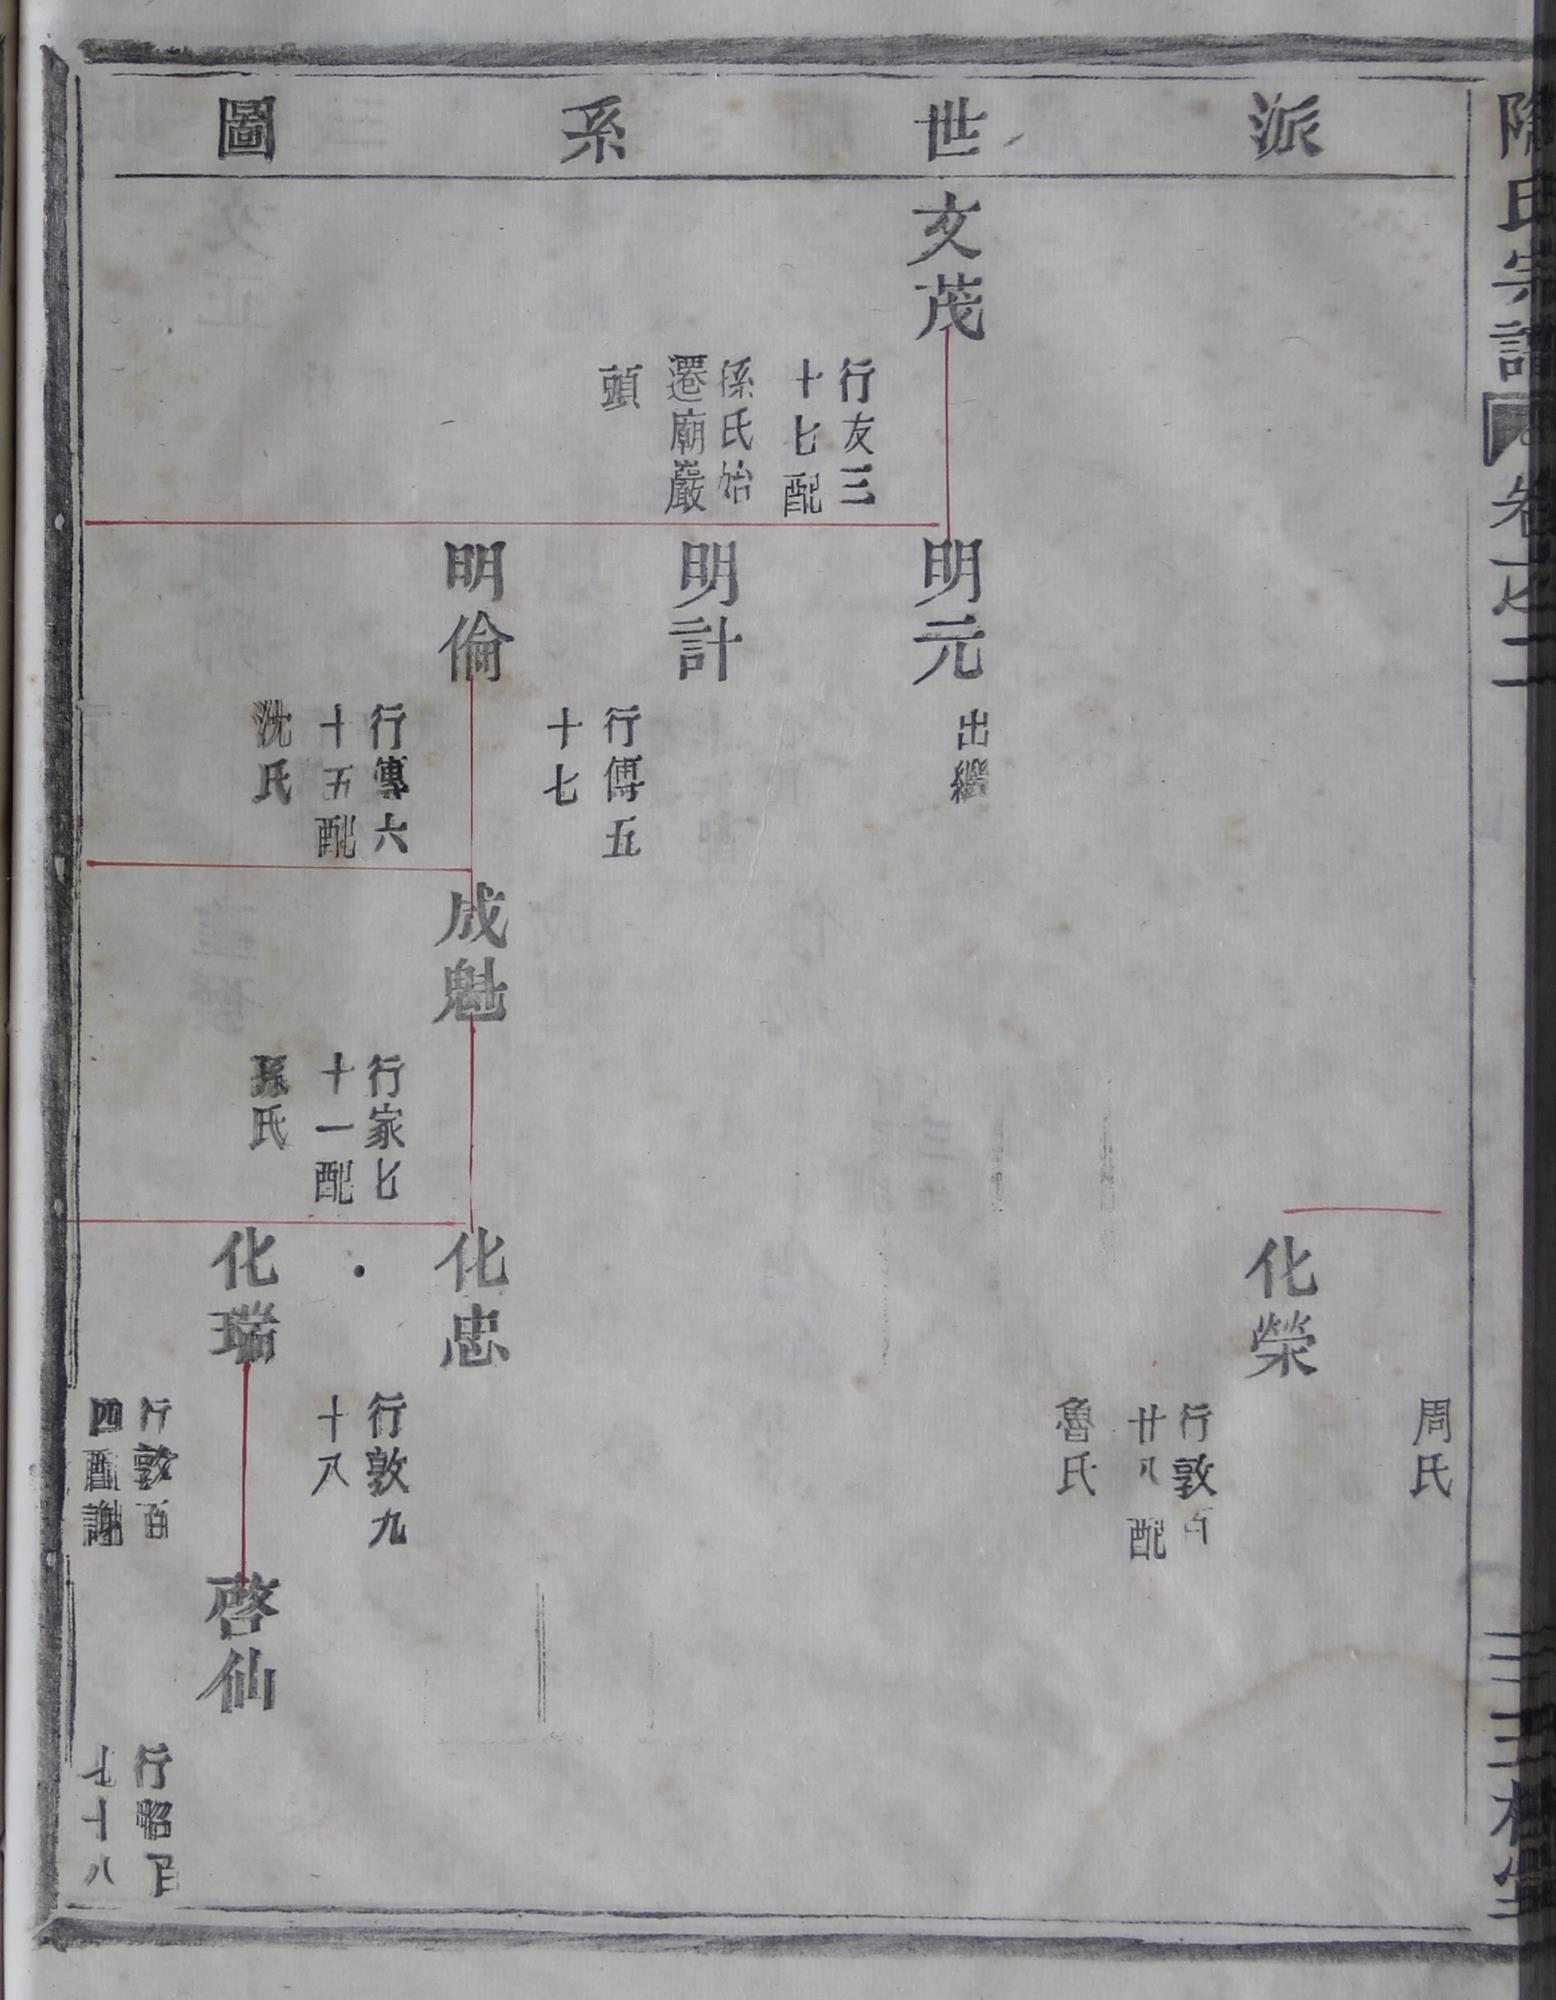 氏宗譜
卷之二
三槐堂
派世系圖
周氏
化榮
行敦百
廿八配
魯氏
文茂
行友三
十七配
孫氏始
遷廟嚴
頭
明元
出繼
明計
行傅五
十七
明倫
行傳六
十五配
沈氏
成魁
行家七
十一配
孫氏
化忠
行敦九
十八
化瑞
行敦百
四配謝
啓仙
行昭百
七十八